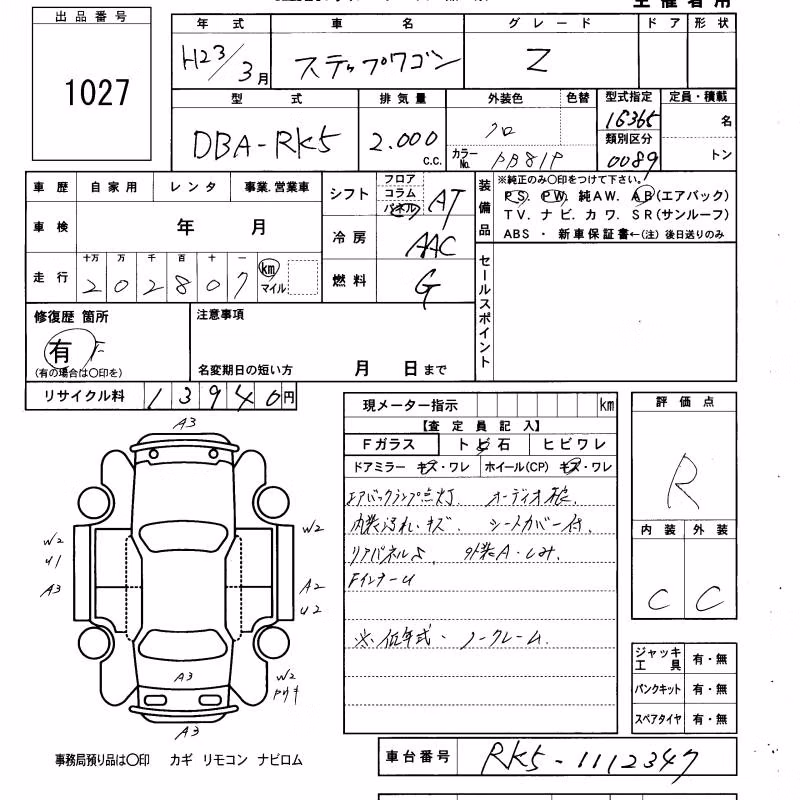 主催者用
出品番号
1027
年式 車名 グレード ドア 形状
H23/3月 ステップワゴン Z
型式 排気量 外装色 色替 型式指定 定員・積載
DBA-RK5 2.000 c.c. クロ 16365 名
類別区分
カラーNo. PB81P 0089 トン
車歴 自家用 レンタ 事業.営業車
車検 年 月
走行 十万 万 千 百 十 一
202807 km マイル
シフト フロア コラム パネル AT
冷房 AAC
燃料 G
装備品
※純正のみ〇印をつけて下さい。
PS. PW. 純AW. AB(エアバック)
TV. ナビ. カワ. SR(サンルーフ)
ABS ・ 新車保証書←(注) 後日送りのみ
セールスポイント
修復歴 箇所
有 F
(有の場合は〇印を)
注意事項
名変期日の短い方 月 日まで
リサイクル料 13940円
現メーター指示 km
【査定員記入】
Fガラス トビ石 ヒビワレ
ドアミラー キズ・ワレ ホイール(CP) キズ・ワレ
エアバックランプ点灯. オーディオ
内装汚れ・キズ. シートカバー付.
リアパネル 外装A・しみ.
FインナーU
※低年式・ノークレーム.
評価点
R
内装 外装
C C
A3
W2
U1
A3
W2
A2
U2
A3
W2
A3
ジャッキ工具 有・無
パンクキット 有・無
スペアタイヤ 有・無
事務局預り品は〇印 カギ リモコン ナビロム
車台番号 RK5-1112347